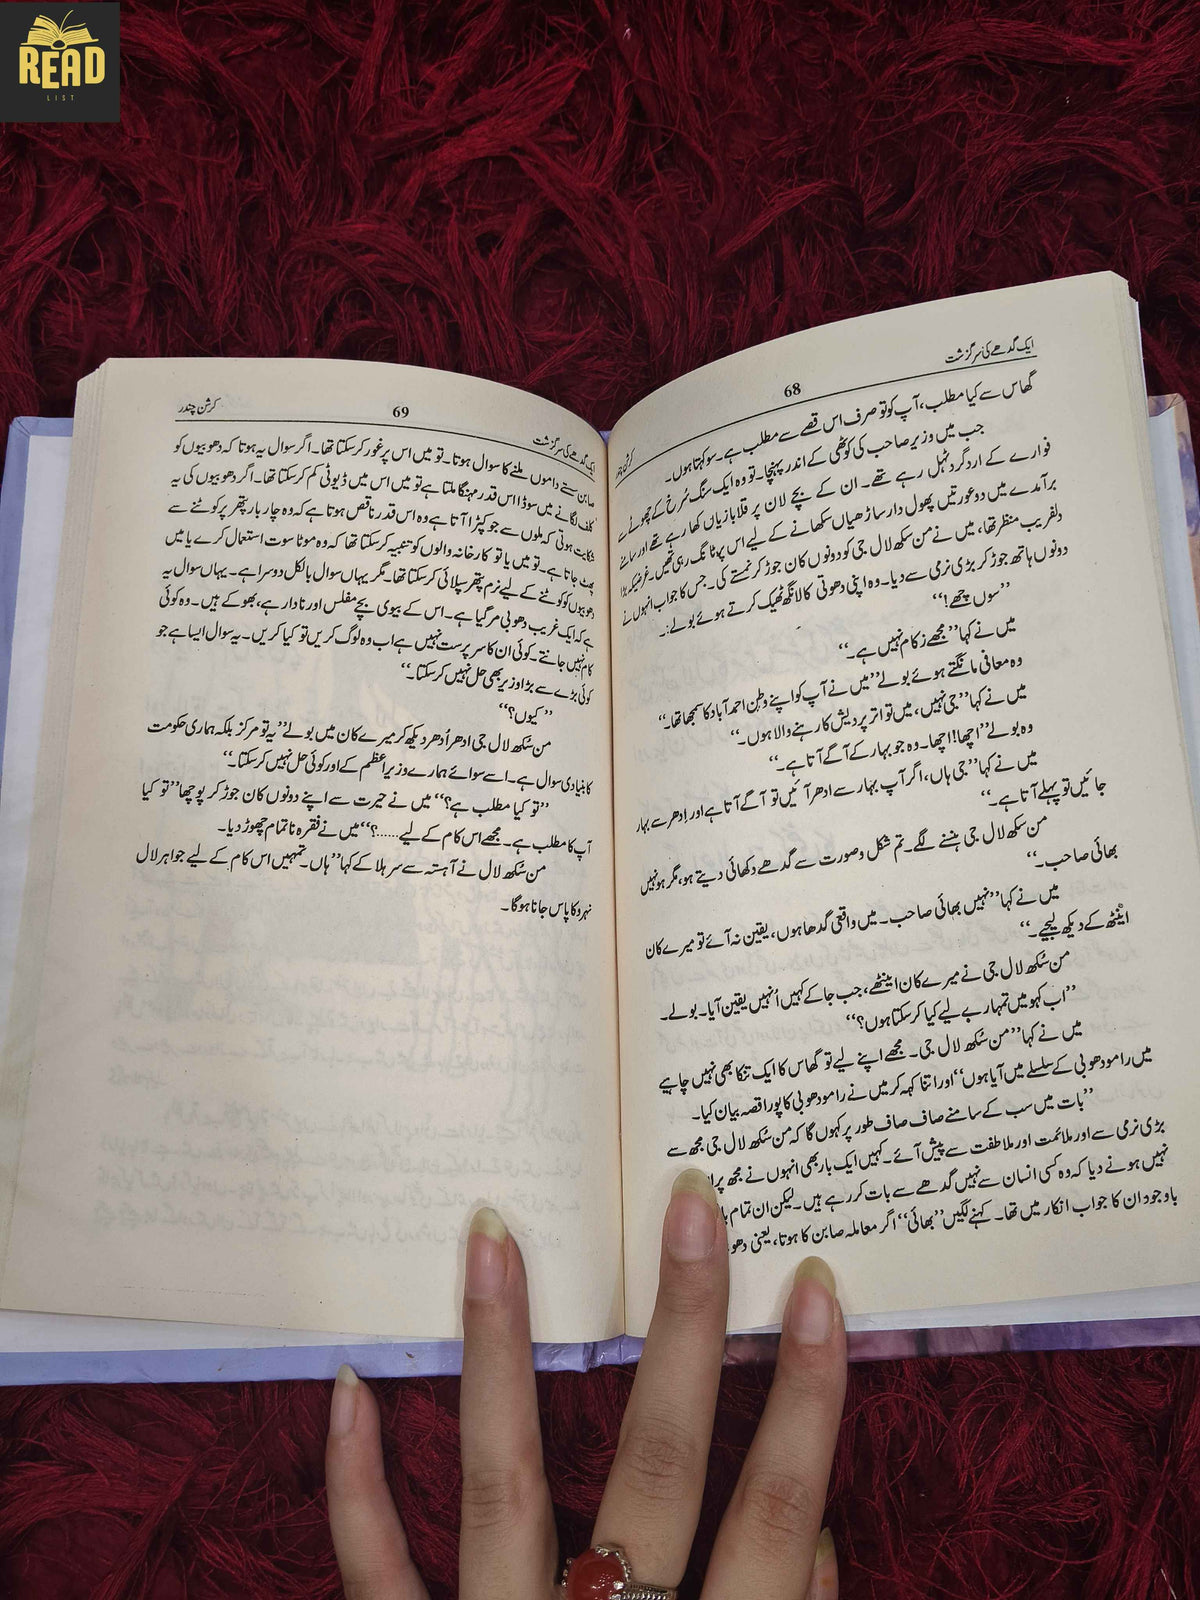 READ
LIST
ایک گدھے کی سرگزشت
68
گھاس سے کیا مطلب، آپ کو تو صرف اس قصے سے مطلب ہے۔ سو کہتا ہوں۔
جب میں وزیر صاحب کی کوٹھی کے اندر پہنچا۔ تو وہ ایک سنگ سُرخ کے چھوٹے سے
فوارے کے اردگرد ٹہل رہے تھے۔ ان کے بچے لان پر قلابازیاں کھا رہے تھے اور سامنے
برآمدے میں دو عورتیں پھول دار ساڑھیاں سکھانے کے لیے اس پر ٹانک رہی تھیں۔ غرضیکہ بڑا
دلفریب منظر تھا، میں نے من سکھ لال جی کو دونوں کان جوڑ کر نمستے کی۔ جس کا جواب انہوں نے
دونوں ہاتھ جوڑ کر بڑی نرمی سے دیا۔ وہ اپنی دھوتی کا لانگھ ٹھیک کرتے ہوئے بولے:۔
”سوں چھے!“
میں نے کہا ”مجھے زکام نہیں ہے۔“
وہ معافی مانگتے ہوئے بولے ”میں نے آپ کو اپنے وطن احمد آباد کا سمجھا تھا۔“
میں نے کہا ”جی نہیں، میں تو اتر پردیش کا رہنے والا ہوں۔“
وہ بولے ”اچھا! اچھا۔ وہ جو بہار کے آگے آتا ہے۔“
میں نے کہا ”جی ہاں، اگر آپ بہار سے ادھر آئیں تو آگے آتا ہے اور اِدھر سے بہار
جائیں تو پہلے آتا ہے۔“
من سکھ لال جی ہنسنے لگے۔ تم شکل و صورت سے گدھے دکھائی دیتے ہو، مگر ہو نہیں
بھائی صاحب۔“
میں نے کہا ”نہیں بھائی صاحب۔ میں واقعی گدھا ہوں، یقین نہ آئے تو میرے کان
اینٹھ کے دیکھ لیجیے۔“
من سُکھ لال جی نے میرے کان اینٹھے، جب جا کے کہیں اُنہیں یقین آیا۔ بولے۔
”اب کہو میں تمہارے لیے کیا کر سکتا ہوں؟“
میں نے کہا ”من سُکھ لال جی۔ مجھے اپنے لیے تو گھاس کا ایک تنکا بھی نہیں چاہیے
میں رامو دھوبی کے سلسلے میں آیا ہوں“ اور اتنا کہہ کر میں نے رامو دھوبی کا پورا قصہ بیان کیا۔
”بات میں سب کے سامنے صاف صاف طور پر کہوں گا کہ من سُکھ لال جی مجھ سے
بڑی نرمی سے اور ملائمت اور ملاطفت سے پیش آئے۔ کہیں ایک بار بھی انہوں نے مجھ پر
نہیں ہونے دیا کہ وہ کسی انسان سے نہیں گدھے سے بات کر رہے ہیں۔ لیکن ان تمام
باوجود ان کا جواب انکار میں تھا۔ کہنے لگیں ”بھائی“ اگر معاملہ صابن کا ہوتا، یعنی
ایک گدھے کی سرگزشت
69
کرشن چندر
صابن سستے داموں ملنے کا سوال ہوتا۔ تو میں اس پر غور کر سکتا تھا۔ اگر سوال یہ ہوتا کہ دھوبیوں کو
کلف لگانے میں سوڈا اس قدر مہنگا ملتا ہے تو میں اس میں ڈیوٹی کم کر سکتا تھا۔ اگر دھوبیوں کی یہ
شکایت ہوتی کہ ملوں سے جو کپڑا آتا ہے وہ اس قدر ناقص ہوتا ہے کہ وہ چار بار پتھر پر کوٹنے سے
پھٹ جاتا ہے۔ تو میں یا تو کارخانہ والوں کو تنبیہہ کر سکتا تھا کہ وہ موٹا سوت استعمال کرے یا میں
دھوبیوں کو کوٹنے کے لیے نرم پتھر سپلائی کر سکتا تھا۔ مگر یہاں سوال بالکل دوسرا ہے۔ یہاں سوال یہ
ہے کہ ایک غریب دھوبی مر گیا ہے۔ اس کے بیوی بچے مفلس اور نادار ہے، بھوکے ہیں۔ وہ کوئی
کام نہیں جانتے۔ کوئی ان کا سرپرست نہیں ہے اب وہ لوگ کریں تو کیا کریں۔ یہ سوال ایسا ہے جو
کوئی بڑے سے بڑا وزیر بھی حل نہیں کر سکتا۔“
”کیوں؟“
من سُکھ لال جی ادھر اُدھر دیکھ کر میرے کان میں بولے ”یہ تو مرکز بلکہ ہماری حکومت
کا بنیادی سوال ہے۔ اسے سوائے ہمارے وزیر اعظم کے اور کوئی حل نہیں کر سکتا۔“
”تو کیا مطلب ہے؟“ میں نے حیرت سے اپنے دونوں کان جوڑ کر پوچھا ”تو کیا
آپ کا مطلب ہے۔ مجھے اس کام کے لیے......؟“ میں نے فقرہ ناتمام چھوڑ دیا۔
من سُکھ لال نے آہستہ سے سر ہلا کے کہا ”ہاں۔ تمہیں اس کام کے لیے جواہر لال
نہرو کا پاس جانا ہوگا۔